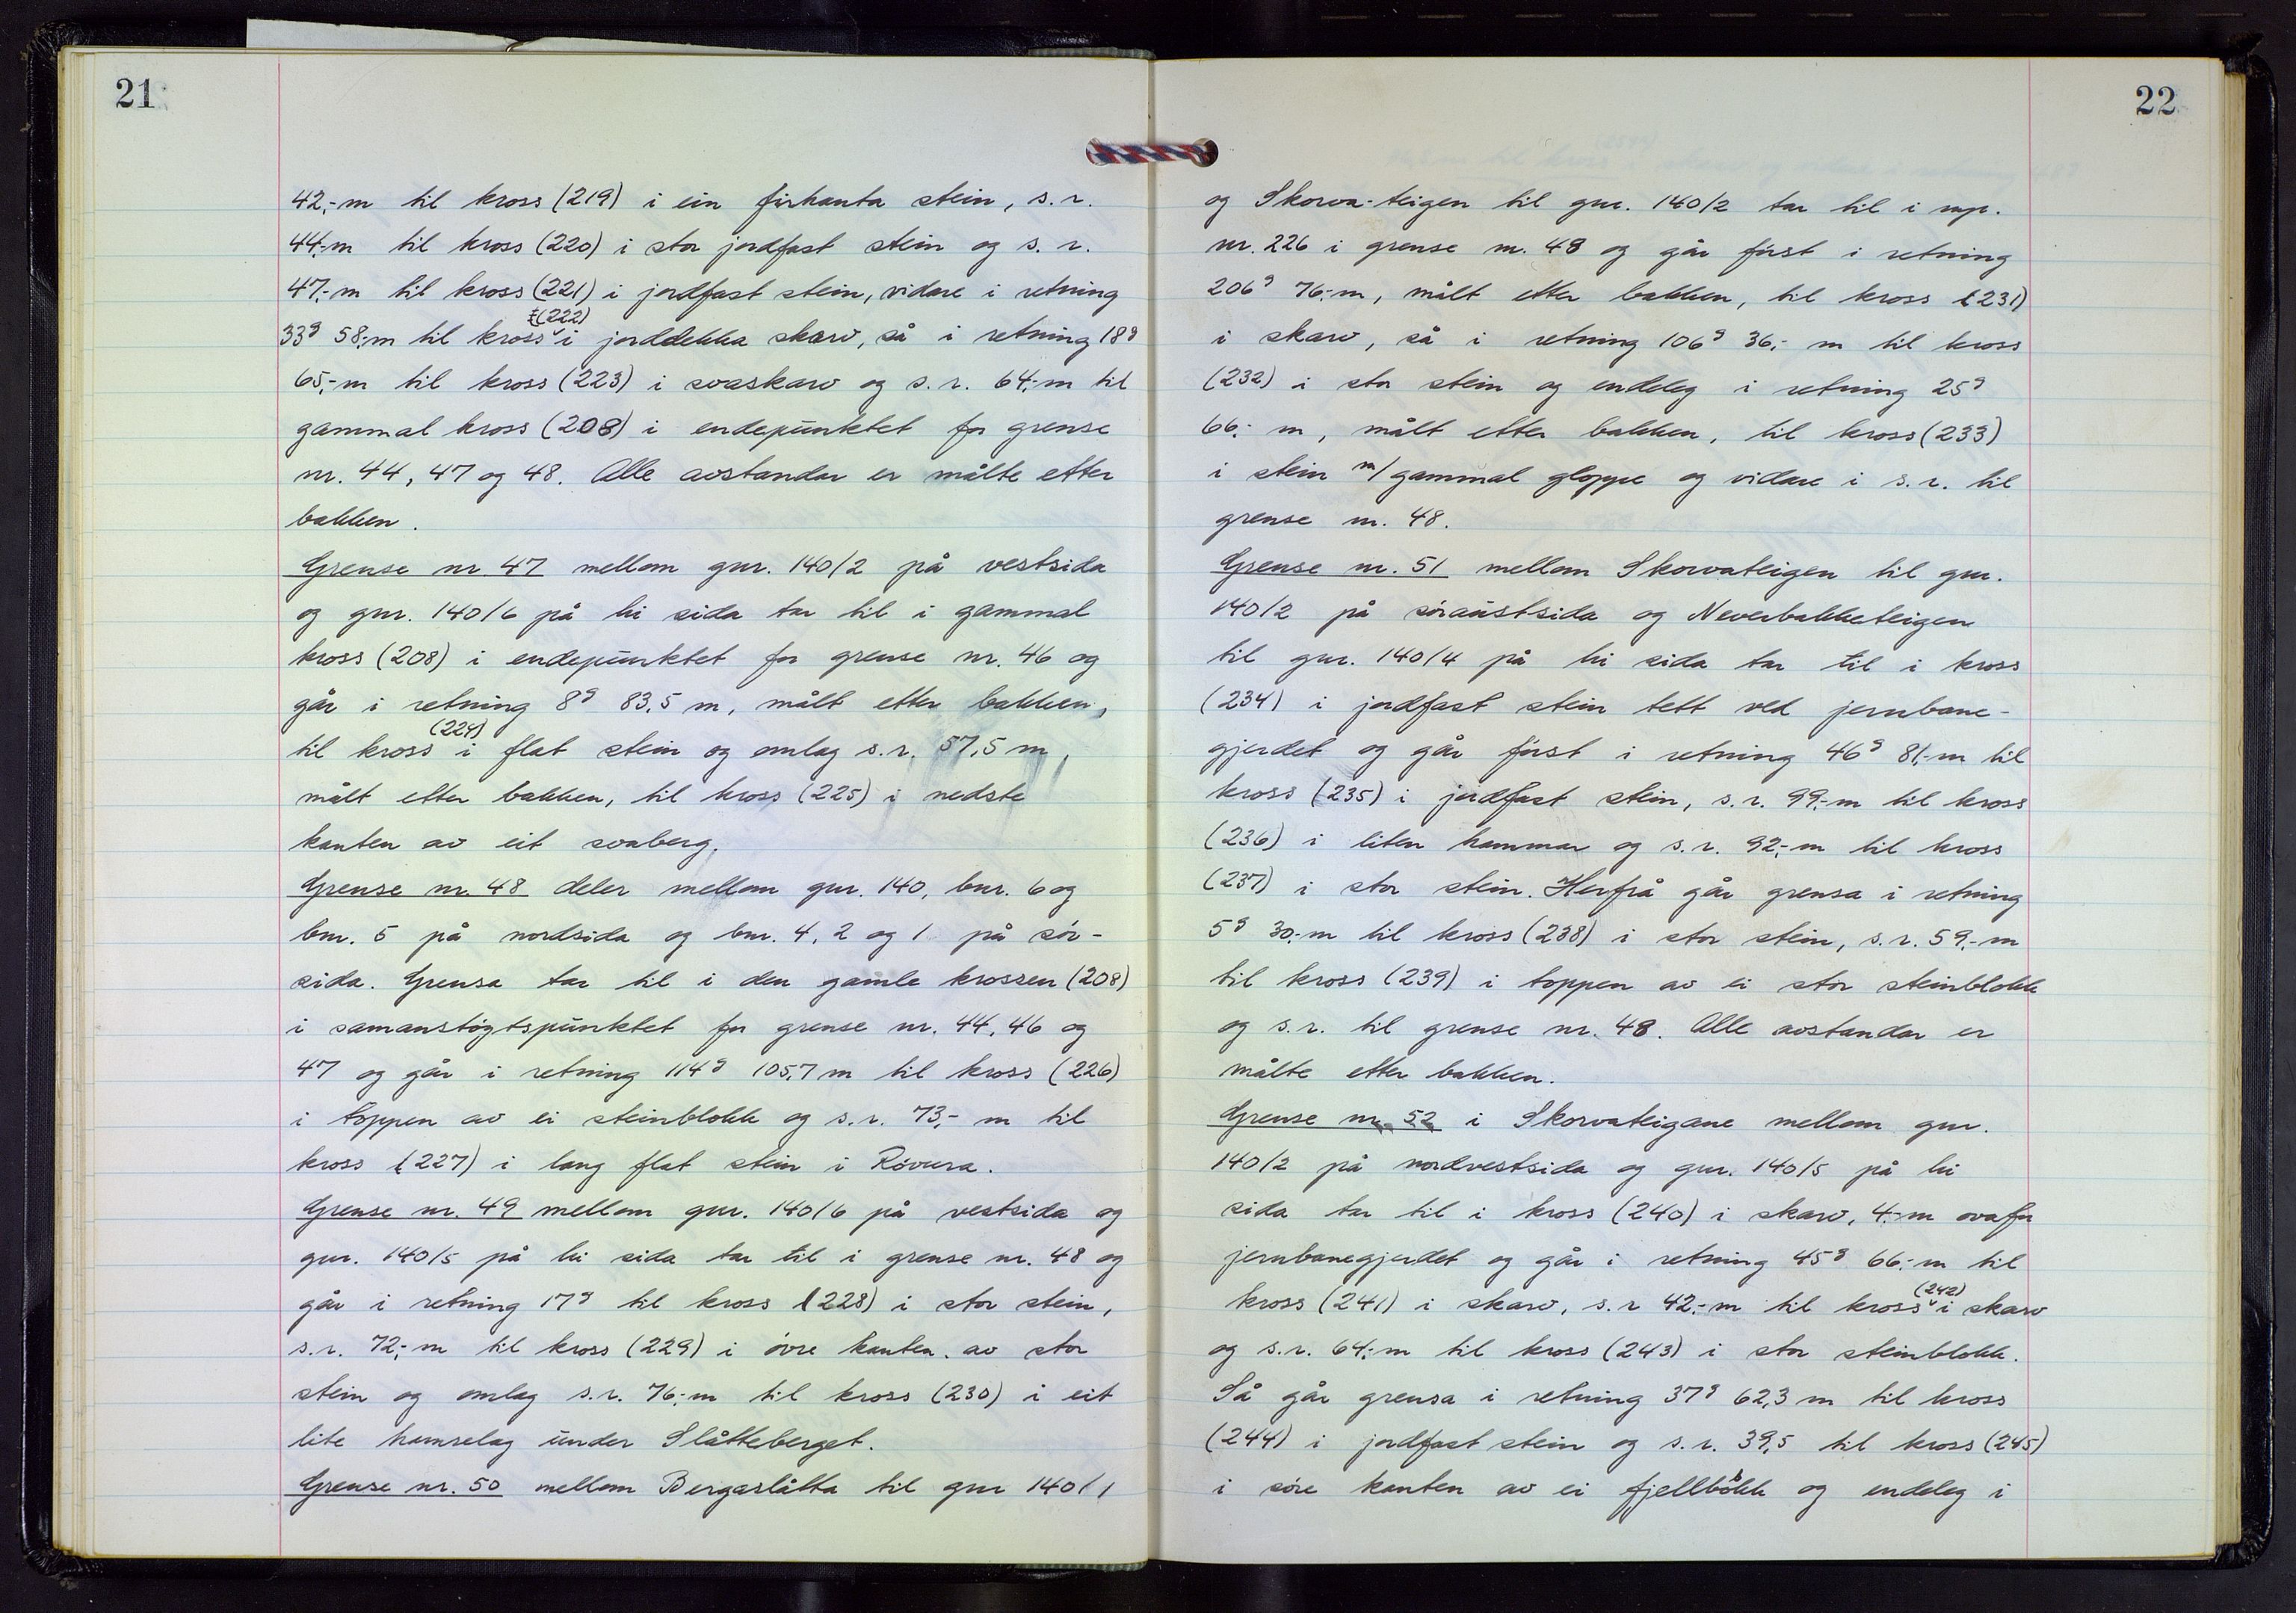 21
42,- m til kross (219) i ein firkanta stein, s. r.
44,- m til kross (220) i stor jordfast stein og s. r.
47,- m til kross (221) i jordfast stein, vidare i retning
33g 58,- m til kross (222) i jorddekka skarv, så i retning 18g
65,- m til kross (223) i svaskarv og s. r. 64,- m til
gammal kross (208) i endepunktet for grense
nr. 44, 47 og 48. Alle avstandar er målte etter
bakken.
Grense nr. 47 mellom gnr. 140/2 på vestsida
og gnr. 140/6 på hi sida tar til i gammal
kross (208) i endepunktet for grense nr. 46 og
går i retning 8g 83,5 m, målt etter bakken,
til kross (224) i flat stein og omlag s. r. 57,5 m,
målt etter bakken, til kross (225) i nedste
kanten av eit svaberg.
Grense nr. 48 deler mellom gnr. 140, bnr. 6 og
bnr. 5 på nordsida og bnr. 4, 2 og 1 på sør-
sida. Grensa tar til i den gamle krossen (208)
i samanstøytspunktet for grense nr. 44, 46 og
47 og går i retning 114g 105,7 m til kross (226)
i toppen av ei steinblokk og s. r. 73,- m til
kross (227) i lang flat stein i Røvura.
Grense nr. 49 mellom gnr. 140/6 på vestsida og
gnr. 140/5 på hi sida tar til i grense nr. 48 og
går i retning 17g til kross (228) i stor stein,
s. r. 72,- m til kross (229) i øvre kanten av stor
stein og omlag s. r. 76,- m til kross (230) i eit
lite hamrelag under Slåtteberget.
Grense nr. 50 mellom Bergaslåtta til gnr 140/1
22
og Skorva-teigen til gnr. 140/2 tar til i mp.
nr. 226 i grense nr. 48 og går først i retning
206g 76,- m, målt etter bakken, til kross (231)
i skarv, så i retning 106g 36,- m til kross
(232) i stor stein og endeleg i retning 25g
66,- m, målt etter bakken, til kross (233)
i stein m/gammal gloppe og vidare i s. r. til
grense nr. 48.
Grense nr. 51 mellom Skorvateigen til gnr.
140/2 på søraustsida og Neverbakketeigen
til gnr. 140/4 på hi sida tar til i kross
(234) i jordfast stein tett ved jernbane-
gjerdet og går først i retning 46g 81,- m til
kross (235) i jordfast stein, s. r. 99,- m til kross
(236) i liten hammar og s. r. 92,- m til kross
(237) i stor stein. Herfrå går grensa i retning
5g 30,- m til kross (238) i stor stein, s. r. 59,- m
til kross (239) i toppen av ei stor steinblokk
og s. r. til grense nr. 48. Alle avstandar er
målte etter bakken.
Grense nr. 52 i Skorvateigane mellom gnr.
140/2 på nordvestsida og gnr. 140/5 på hi
sida tar til i kross (240) i skarv, 4,- m ovafor
jernbanegjerdet og går i retning 45g 66,- m til
kross (241) i skarv, s. r 42,- m til kross (242) i skarv
og s. r. 64,- m til kross (243) i stor steinblokk.
Så går grensa i retning 37g 62,3 m til kross
(244) i jordfast stein og s. r. 39,5 til kross (245)
i søre kanten av ei fjellblokk og endeleg i